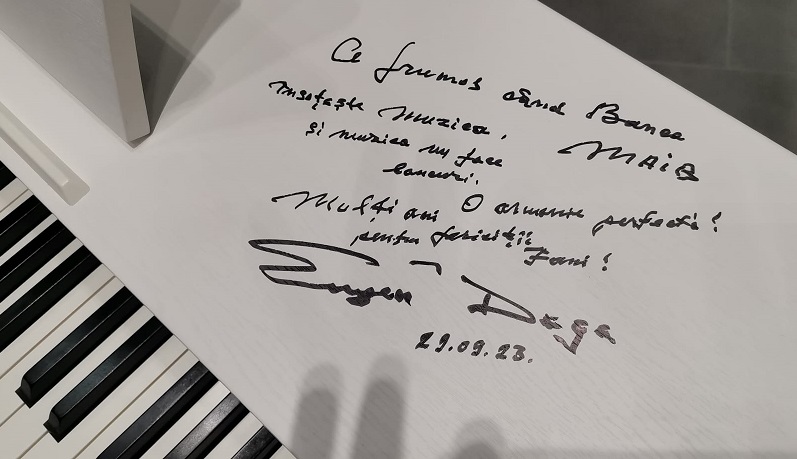 Ce frumos când Banca
însoțește muzica, MAIB
și muzica nu face
bancuri.
Mulți ani O armonie perfectă!
pentru fericiții
Fani!
Eugen Doga
29.09.23.